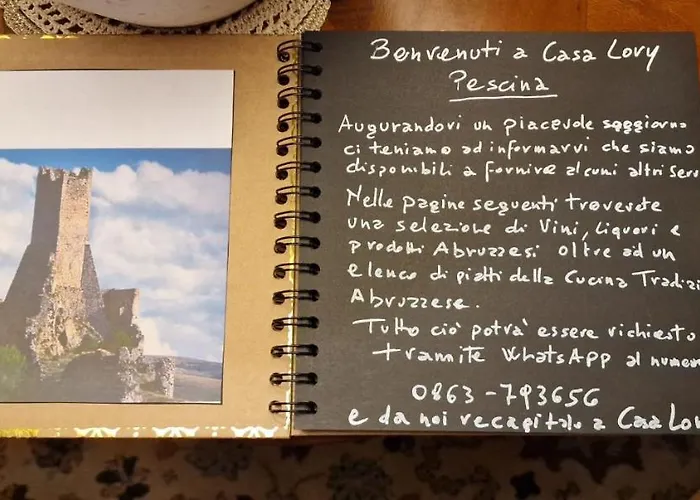 Benvenuti a Casa Lory
Pescina
Augurandovi un piacevole soggiorno
ci teniamo ad informarvi che siamo
disponibili a fornire alcuni altri serv
Nelle pagine seguenti troverete
una selezione di Vini, liquori e
prodotti Abruzzesi oltre ad un
elenco di piatti della Cucina Tradizi
Abruzzese.
Tutto ciò potrà essere richiesto
tramite WhatsApp al numer
0863-793656
e da noi recapitato a Casa Lor